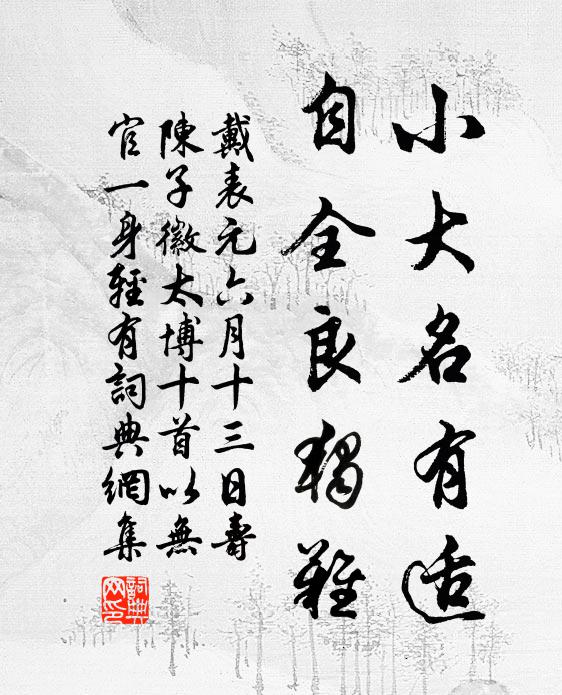 小大名有适
自全良獨難
戴表元六月十三日壽
陳子徽太博十首以無
官一身輕有詞典網集
詞典
网印